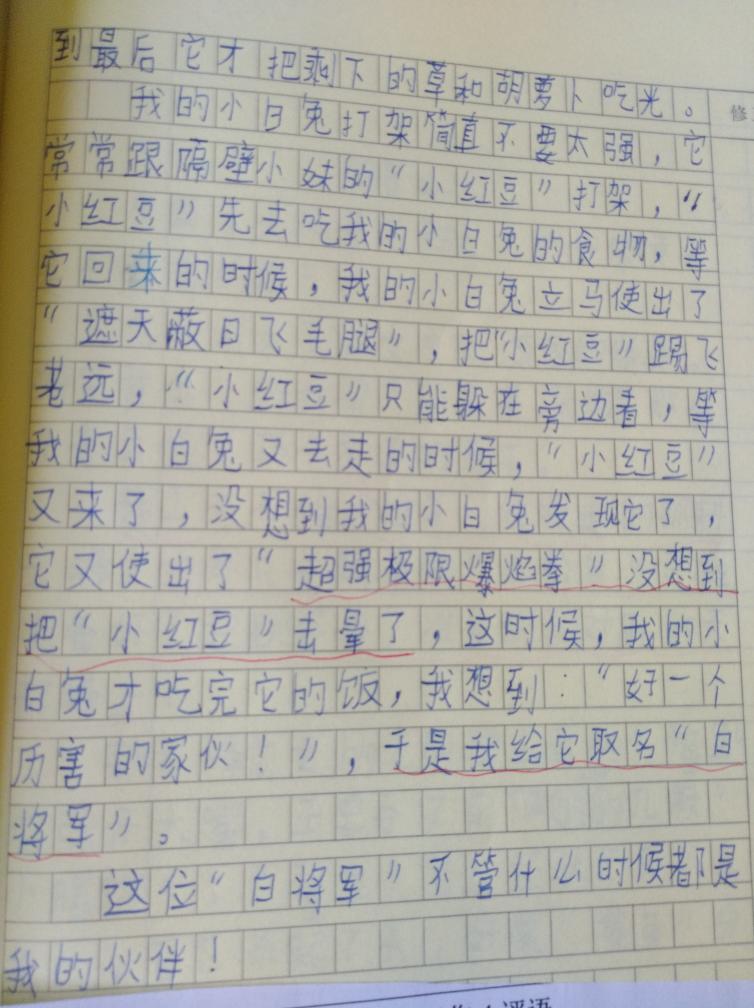 到最后它才把剩下的草和胡萝卜吃光。
修
我的小白兔打架简直不要太强，它
常常跟隔壁小妹的“小红豆”打架，“
小红豆”先去吃我的小白兔的食物，等
它回来的时候，我的小白兔立马使出了
“遮天蔽日飞毛腿”，把“小红豆”踢飞
老远，“小红豆”只能躲在旁边看，等
我的小白兔又去走的时候，“小红豆”
又来了，没想到我的小白兔发现它了，
它又使出了“超强极限爆焰拳”没想到
把“小红豆”击晕了，这时候，我的小
白兔才吃完它的饭，我想到：“好一个
厉害的家伙！”，于是我给它取名“白
将军”。
这位“白将军”不管什么时候都是
我的伙伴！
评语